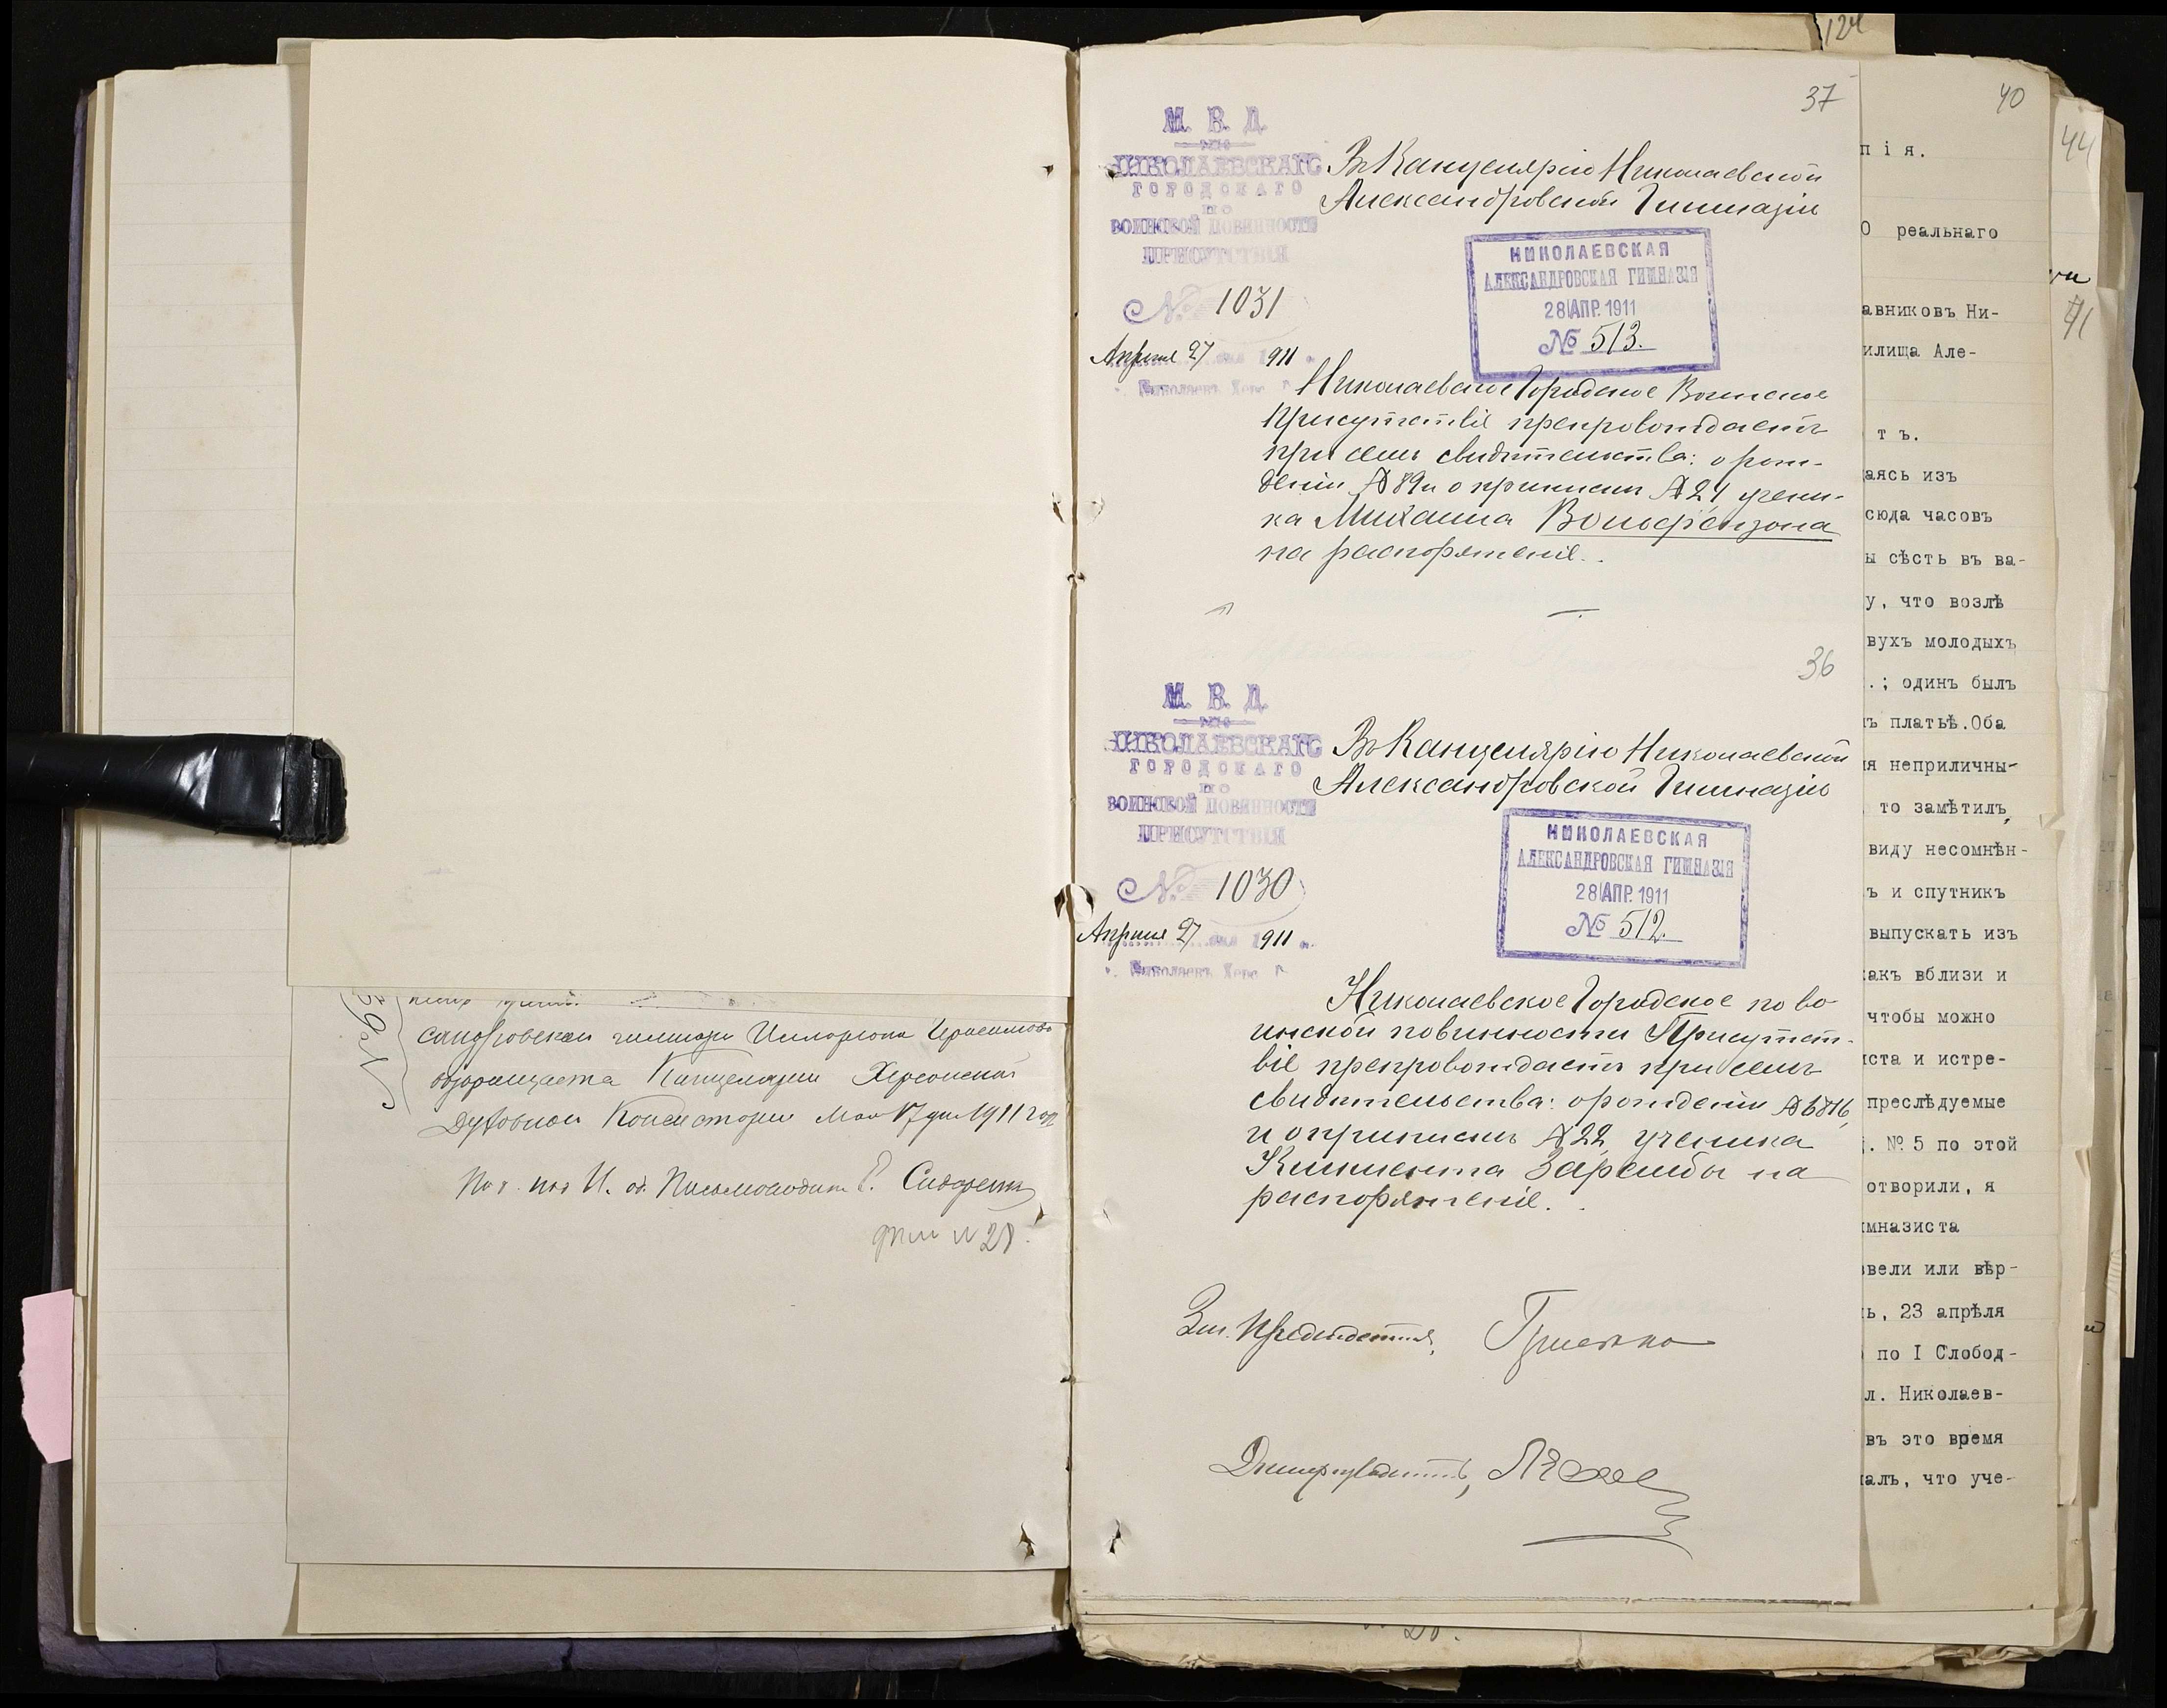 сандровской гимназіи
возвращается Канцеляріи Херсонской
Духовной Консисторіи Мая 17 дня 1911 года
И. об. Письмоводит.
№ 28
124
37
М. В. Д.
НИКОЛАЕВСКАГО
ГОРОДСКАГО
ПО
ВОИНСКОЙ ПОВИННОСТИ
ПРИСУТСТВІЯ
№ 1031
Апреля 27 дня 1911 г.
г. Николаевъ Херс. г.
Въ Канцелярію Николаевской
Александровской Гимназіи
НИКОЛАЕВСКАЯ
АЛЕКСАНДРОВСКАЯ ГИМНАЗІЯ
28 АПР. 1911
№ 513.
Николаевское Городское Воинское
Присутствіе препровождаетъ
при семъ свидѣтельства: о рож-
деніи № 89 и о припискѣ № 24 учени-
ка Михаила Вольфензона
на распоряженіе.
36
М. В. Д.
НИКОЛАЕВСКАГО
ГОРОДСКАГО
ПО
ВОИНСКОЙ ПОВИННОСТИ
ПРИСУТСТВІЯ
№ 1030
Апреля 27 дня 1911 г.
г. Николаевъ Херс. г.
Въ Канцелярію Николаевской
Александровской Гимназіи
НИКОЛАЕВСКАЯ
АЛЕКСАНДРОВСКАЯ ГИМНАЗІЯ
28 АПР. 1911
№ 512.
Николаевское Городское по во-
инской повинности Присутст-
віе препровождаетъ при семъ
свидѣтельства: о рожденіи
и о припискѣ № 22 ученика
Климента Зарембы на
распоряженіе.
Предсѣдателя,
Дѣлопроизводитель,
40
пія.
О реальнаго
авниковъ Ни-
илища Але-
тъ.
аясь изъ
сюда часовъ
ы сѣсть въ ва-
у, что возлѣ
вухъ молодыхъ
.; одинъ былъ
ъ платьѣ. Оба
ія неприличны-
то замѣтилъ,
виду несомнѣн-
ъ и спутникъ
выпускать изъ
акъ вблизи и
чтобы можно
иста и истре-
преслѣдуемые
. № 5 по этой
отворили, я
имназиста
звели или вѣр-
ь, 23 апрѣля
по I Слобод-
л. Николаев-
въ это время
алъ, что уче-
44
41